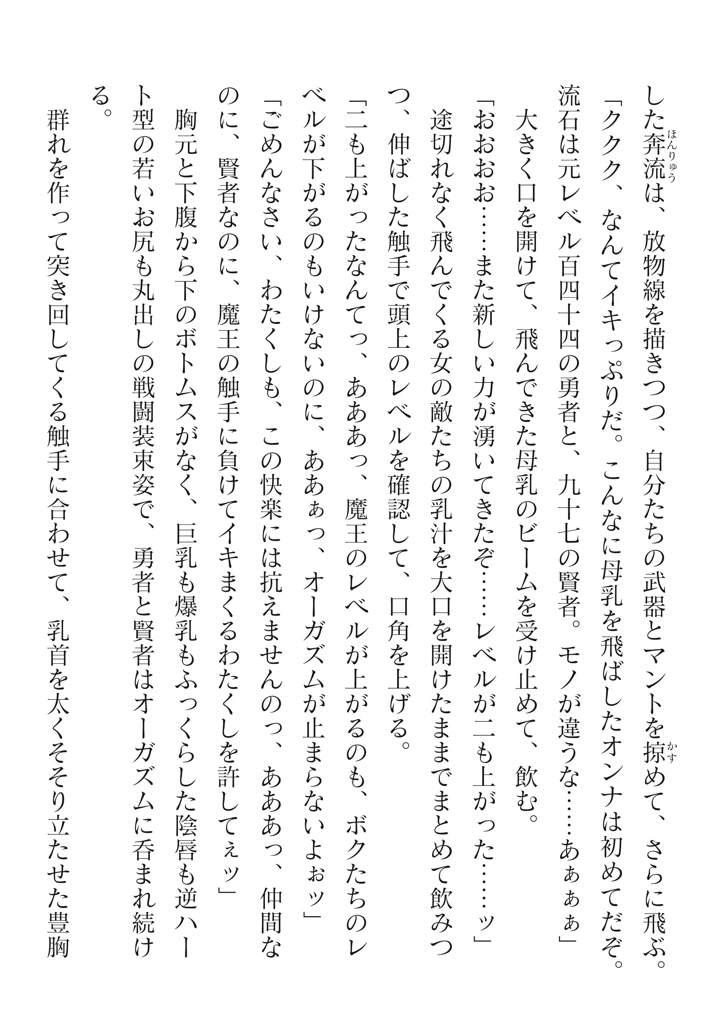 した奔流は、放物線を描きつつ、自分たちの武器とマントを掠めて、さらに飛ぶ。
「ククク、なんてイキっぷりだ。こんなに母乳を飛ばしたオンナは初めてだぞ。
流石は元レベル百四十四の勇者と、九十七の賢者。モノが違うな……あぁぁぁ」
　大きく口を開けて、飛んできた母乳のビームを受け止めて、飲む。
「おおおお……また新しい力が湧いてきたぞ……レベルが二も上がった……ッ」
　途切れなく飛んでくる女の敵たちの乳汁を大口を開けたままでまとめて飲みつ
つ、伸ばした触手で頭上のレベルを確認して、口角を上げる。
「二も上がったなんてっ、あああっ、魔王のレベルが上がるのも、ボクたちのレ
ベルが下がるのもいけないのに、ああぁっ、オーガズムが止まらないよぉッ」
「ごめんなさい、わたくしも、この快楽には抗えませんのっ、あああっ、仲間な
のに、賢者なのに、魔王の触手に負けてイキまくるわたくしを許してぇッ」
　胸元と下腹から下のボトムスがなく、巨乳も爆乳もふっくらした陰唇も逆ハー
ト型の若いお尻も丸出しの戦闘装束姿で、勇者と賢者はオーガズムに呑まれ続け
る。
　群れを作って突き回してくる触手に合わせて、乳首を太くそそり立たせた豊胸
ほんりゅう
かす